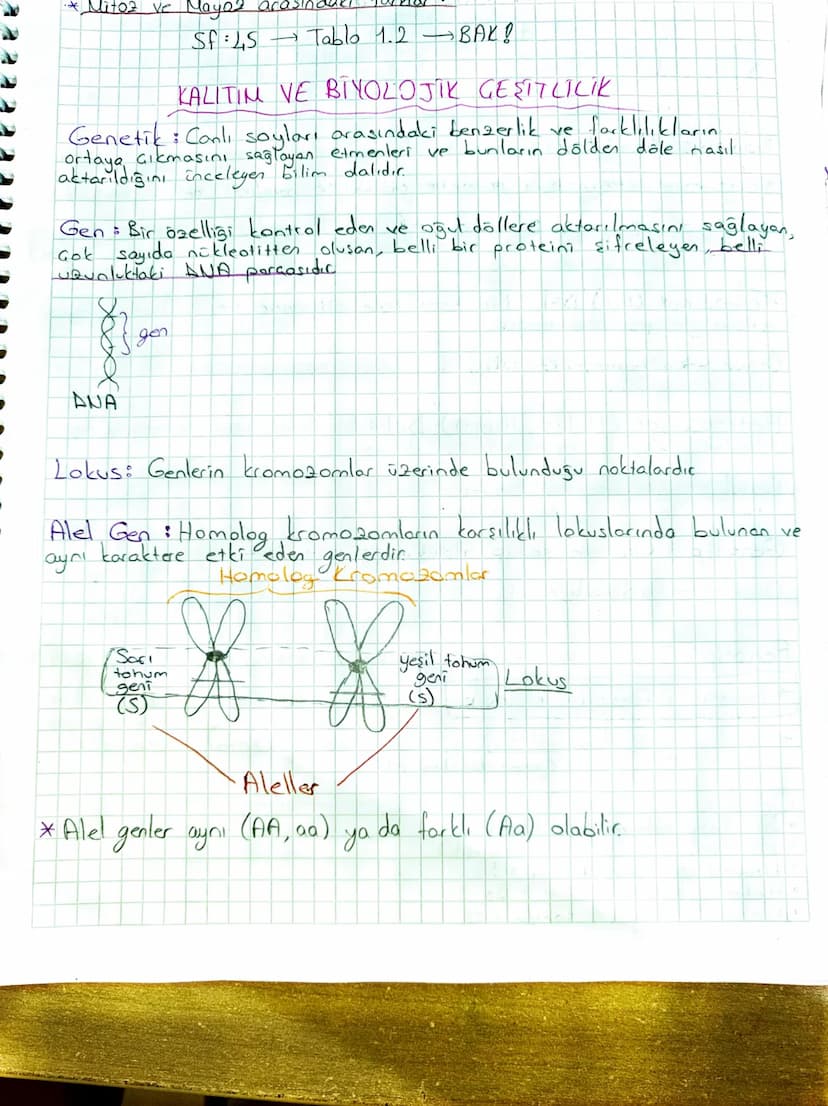 * Mitoz ve Mayoz arasındaki farklar
Sf:45 → Tablo 1.2 → BAK!
KALITIM VE BİYOLOJİK ÇEŞİTLİLİK
Genetik: Canlı soyları arasındaki benzerlik ve farklılıkların
ortaya çıkmasını sağlayan etmenleri ve bunların dölden döle nasıl
aktarıldığını inceleyen bilim dalıdır.
Gen: Bir özelliği kontrol eden ve oğul döllere aktarılmasını sağlayan,
çok sayıda nükleotitten oluşan, belli bir proteini şifreleyen, belli
uzunluktaki DNA parçasıdır
gen
DNA
Lokus: Genlerin kromozomlar üzerinde bulunduğu noktalardır
Alel Gen: Homolog kromozomların karşılıklı lokuslarında bulunan ve
aynı karaktere etki eden genlerdir.
Homolog Kromozomlar
Sarı
tohum
geni
(S)
yeşil tohum
geni
(s)
Lokus
Aleller
* Alel genler aynı (AA, aa) ya da farklı (Aa) olabilir.